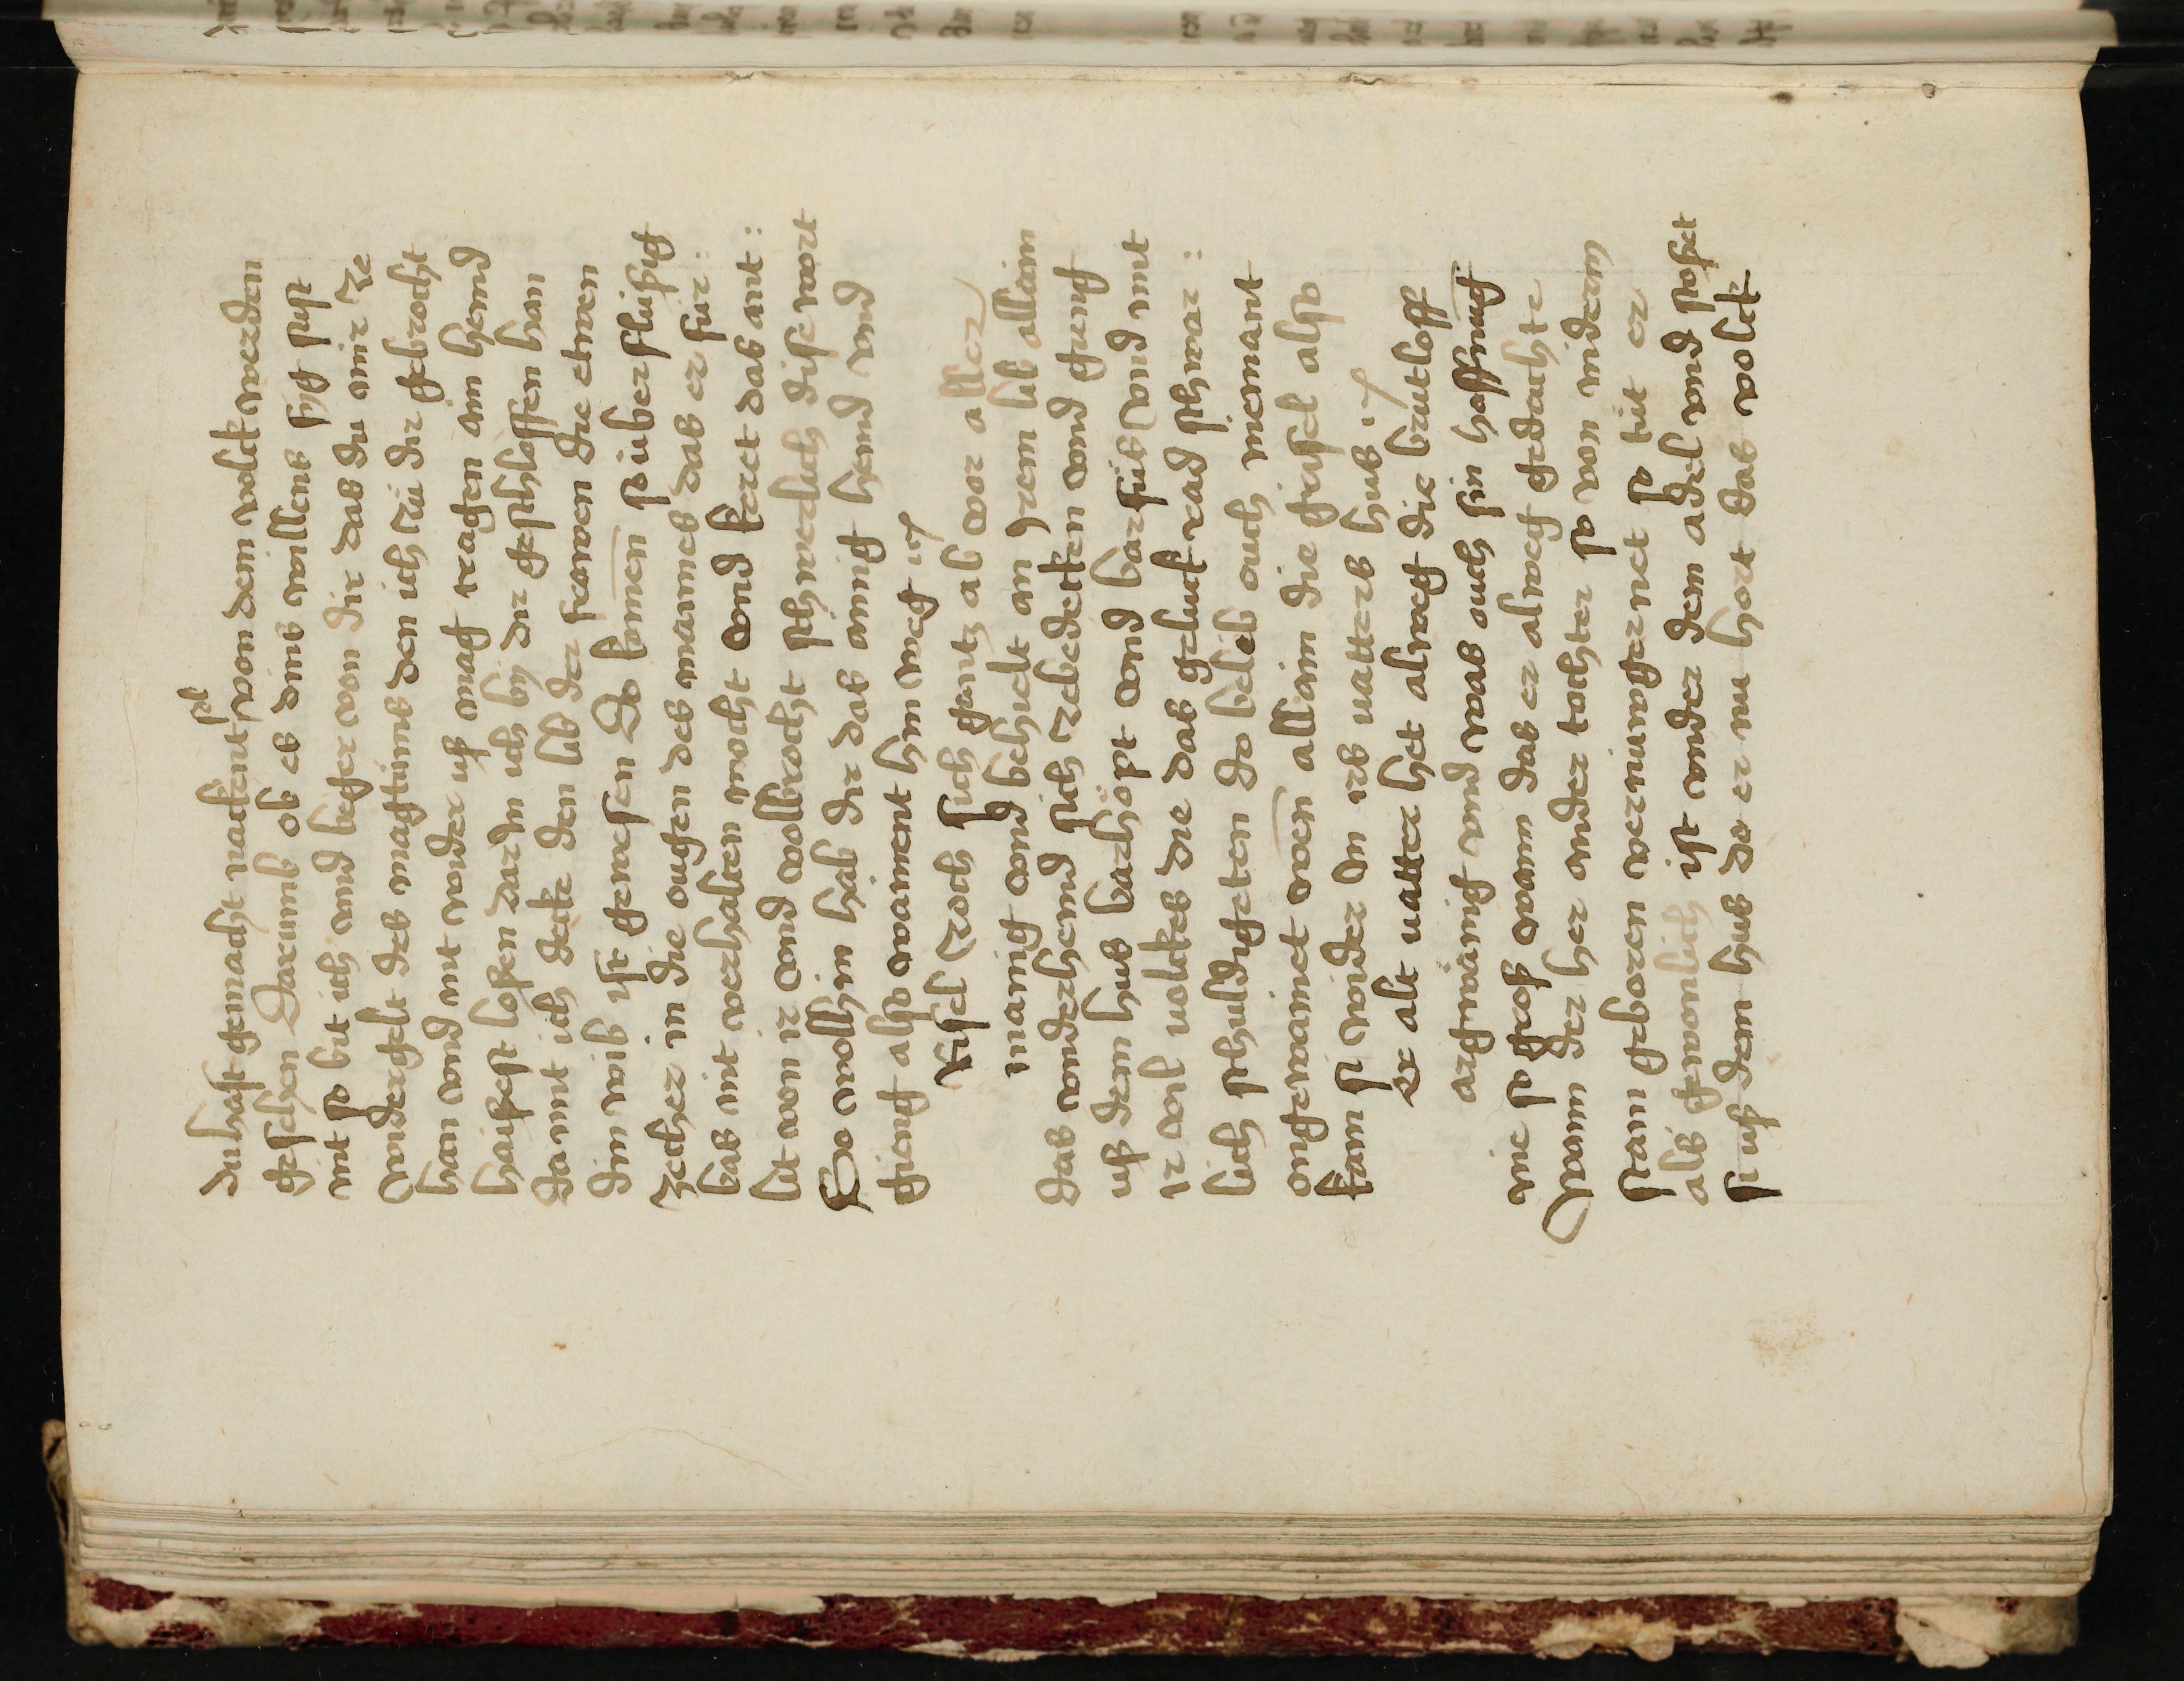 du hast gemacht nackent sol von dem volck werden
gesehen Darumb ob es dins willens syg sust
nit so bit ich vnd beger von dir das du mir ze
widergelt des magtumbs den ich zu dir gebrocht
han vnd nit wider uß mag tragen ain hemd
haissest lossen dar in ich by dir geschloffen han
da mit ich decke den lib der frowen die etwen
din wib ist gewesen Do komen so überflüßig
zecher in die ougen des mannes das er für:
bas nit verhalten mocht vnd keret das ant:
lit von ir vnd vollbrocht schwerlich dise wort
So wollhin hab dir das ainig hemd vnd
gieng also wainent hin weg
Grisel zoch sich gantz ab vor aller
mainig vnd behielt an irem lib allain
das vnderhemd sich zebedecken vnd gieng
uß dem hus barhöpt vnd barfüs vnd mit
ir vil volckes die das geluck rad schwar:
lich schuldigeten do beleib ouch niemant
ongewainet wen allain die grisel also
kam si wider in irs vatters hus
Der alt vatter het alweg die brutloff
argwänig vnd was ouch sin hoffnung
nie so groß wann das er alweg gedachte
Wann der her ander tochter so von niderm
stam geboren vernüwgernet so tüt er
als gewonlich ist vnder dem adel vnd stosset
si uß dem hus do er nu hort das volck